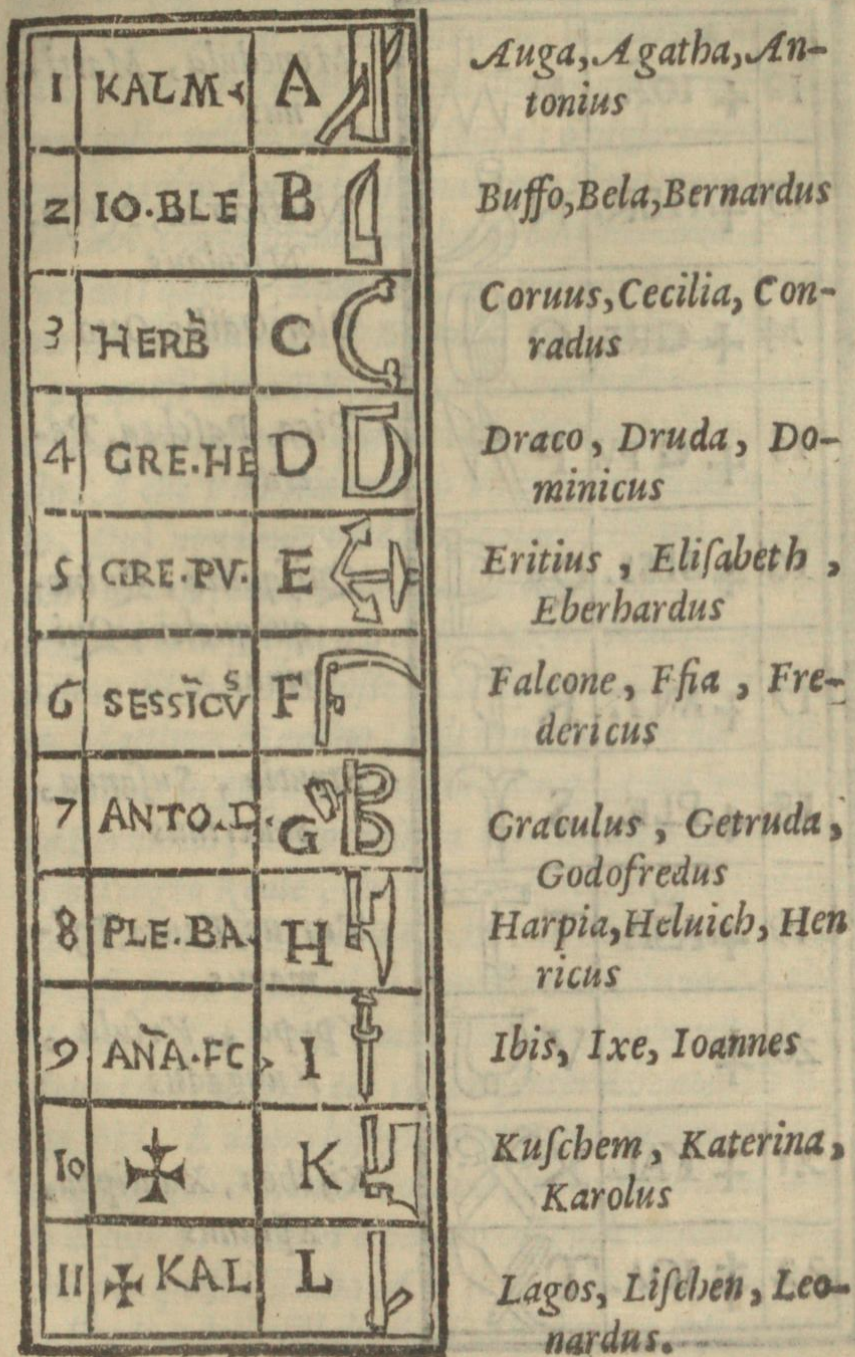 1 KALM A Auga, Agatha, An-
tonius
2 IO.BLE B Buffo, Bela, Bernardus
3 HERB̀ C Coruus, Cecilia, Con-
radus
4 GRE.HE D Draco, Druda, Do-
minicus
5 GRE.PV. E Eritius, Eliſabeth,
Eberhardus
6 SESSĪCVˢ F Falcone, Ffia, Fre-
dericus
7 ANTO.D. G Graculus, Getruda,
Godofredus
8 PLE.BA. H Harpia, Heluich, Hen
ricus
9 AÑA.FC I Ibis, Ixe, Ioannes
10 ✠ K Kuſchem, Katerina,
Karolus
11 ✠ KAL L Lagos, Liſchen, Leo-
nardus.